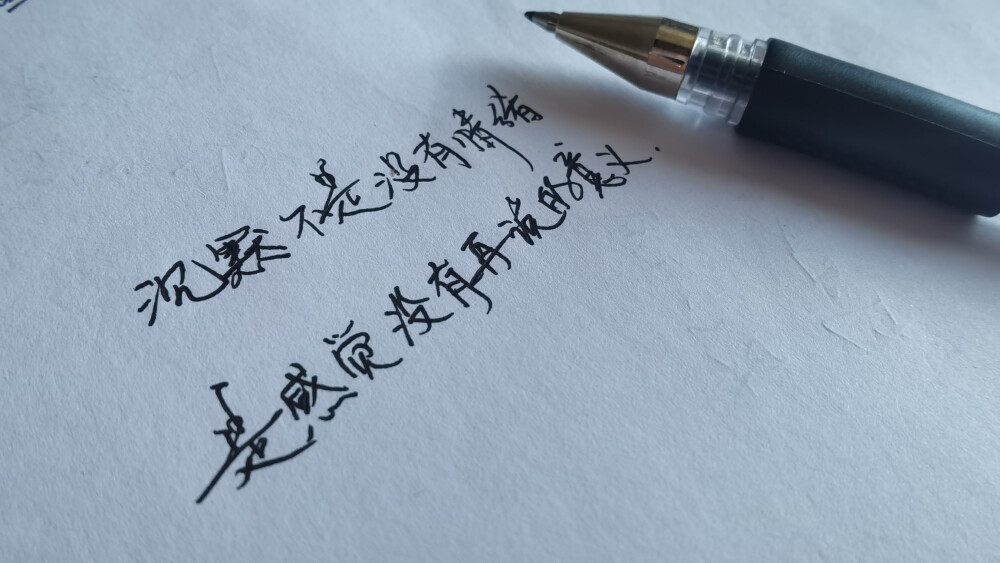 沉默不是没有情绪
是感觉没有再说的意义.